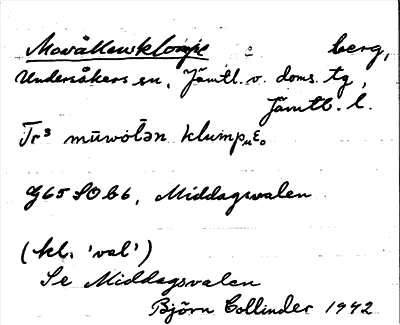 Movållenklompe : berg,
Undersåkers sn, Jämtl. v. doms. tg,
Jämtl. l.
Tr³ mūwōlən klumpₙɛ₀
G65 SO b6, Middagsvalen
(kl. 'val')
Se Middagsvalen
Björn Collinder 1942